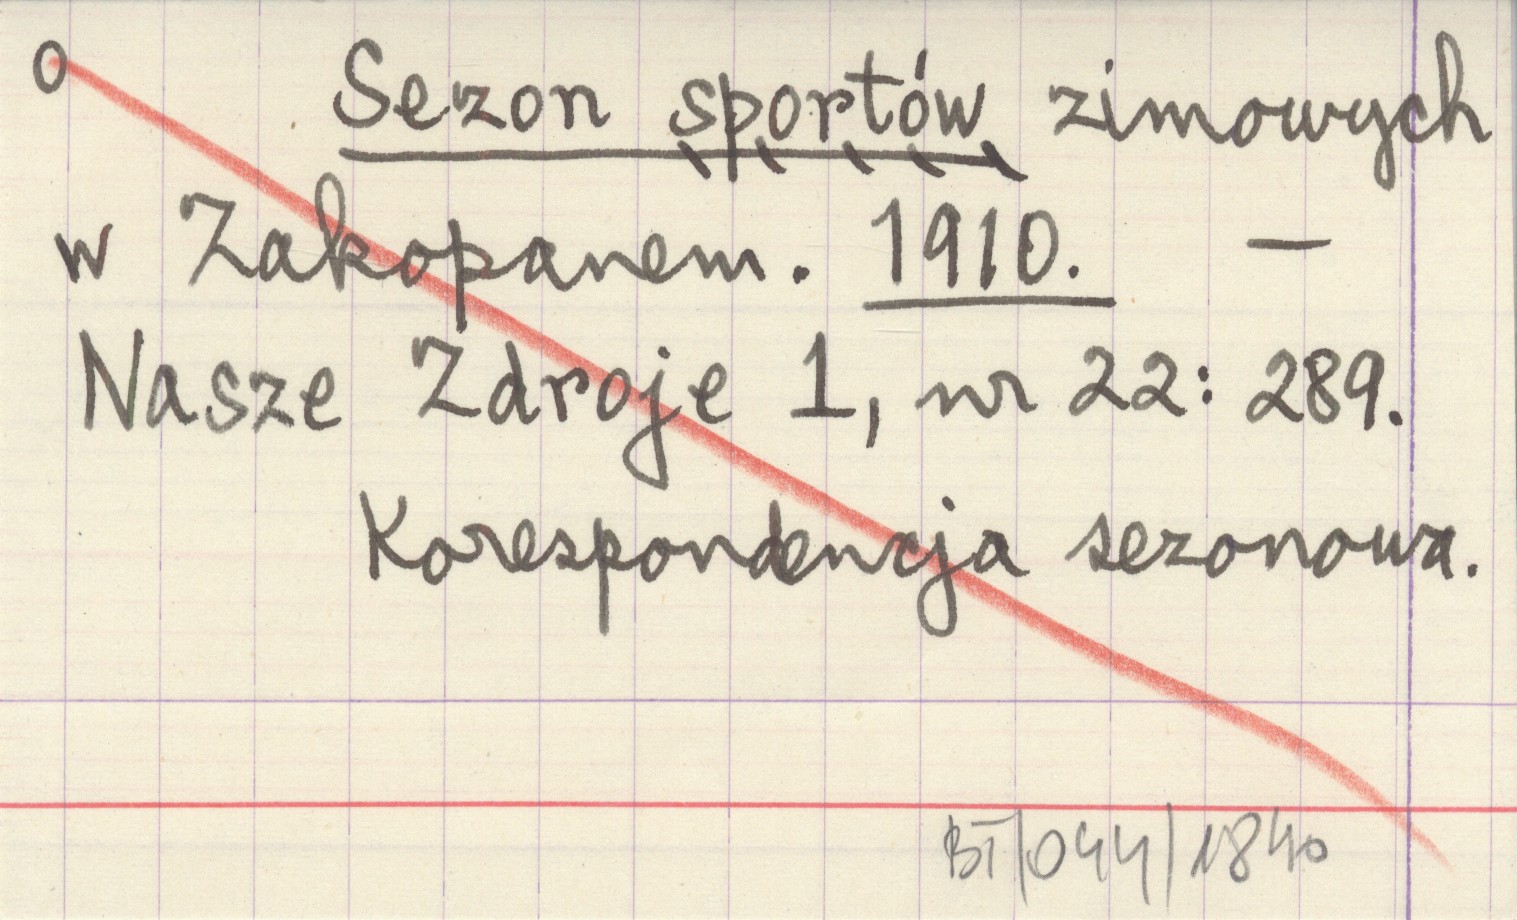 o Sezon sportów zimowych
w Zakopanem. 1910. —
Nasze Zdroje 1, nr 22: 289.
Korespondencja sezonowa.
BT/044/1840